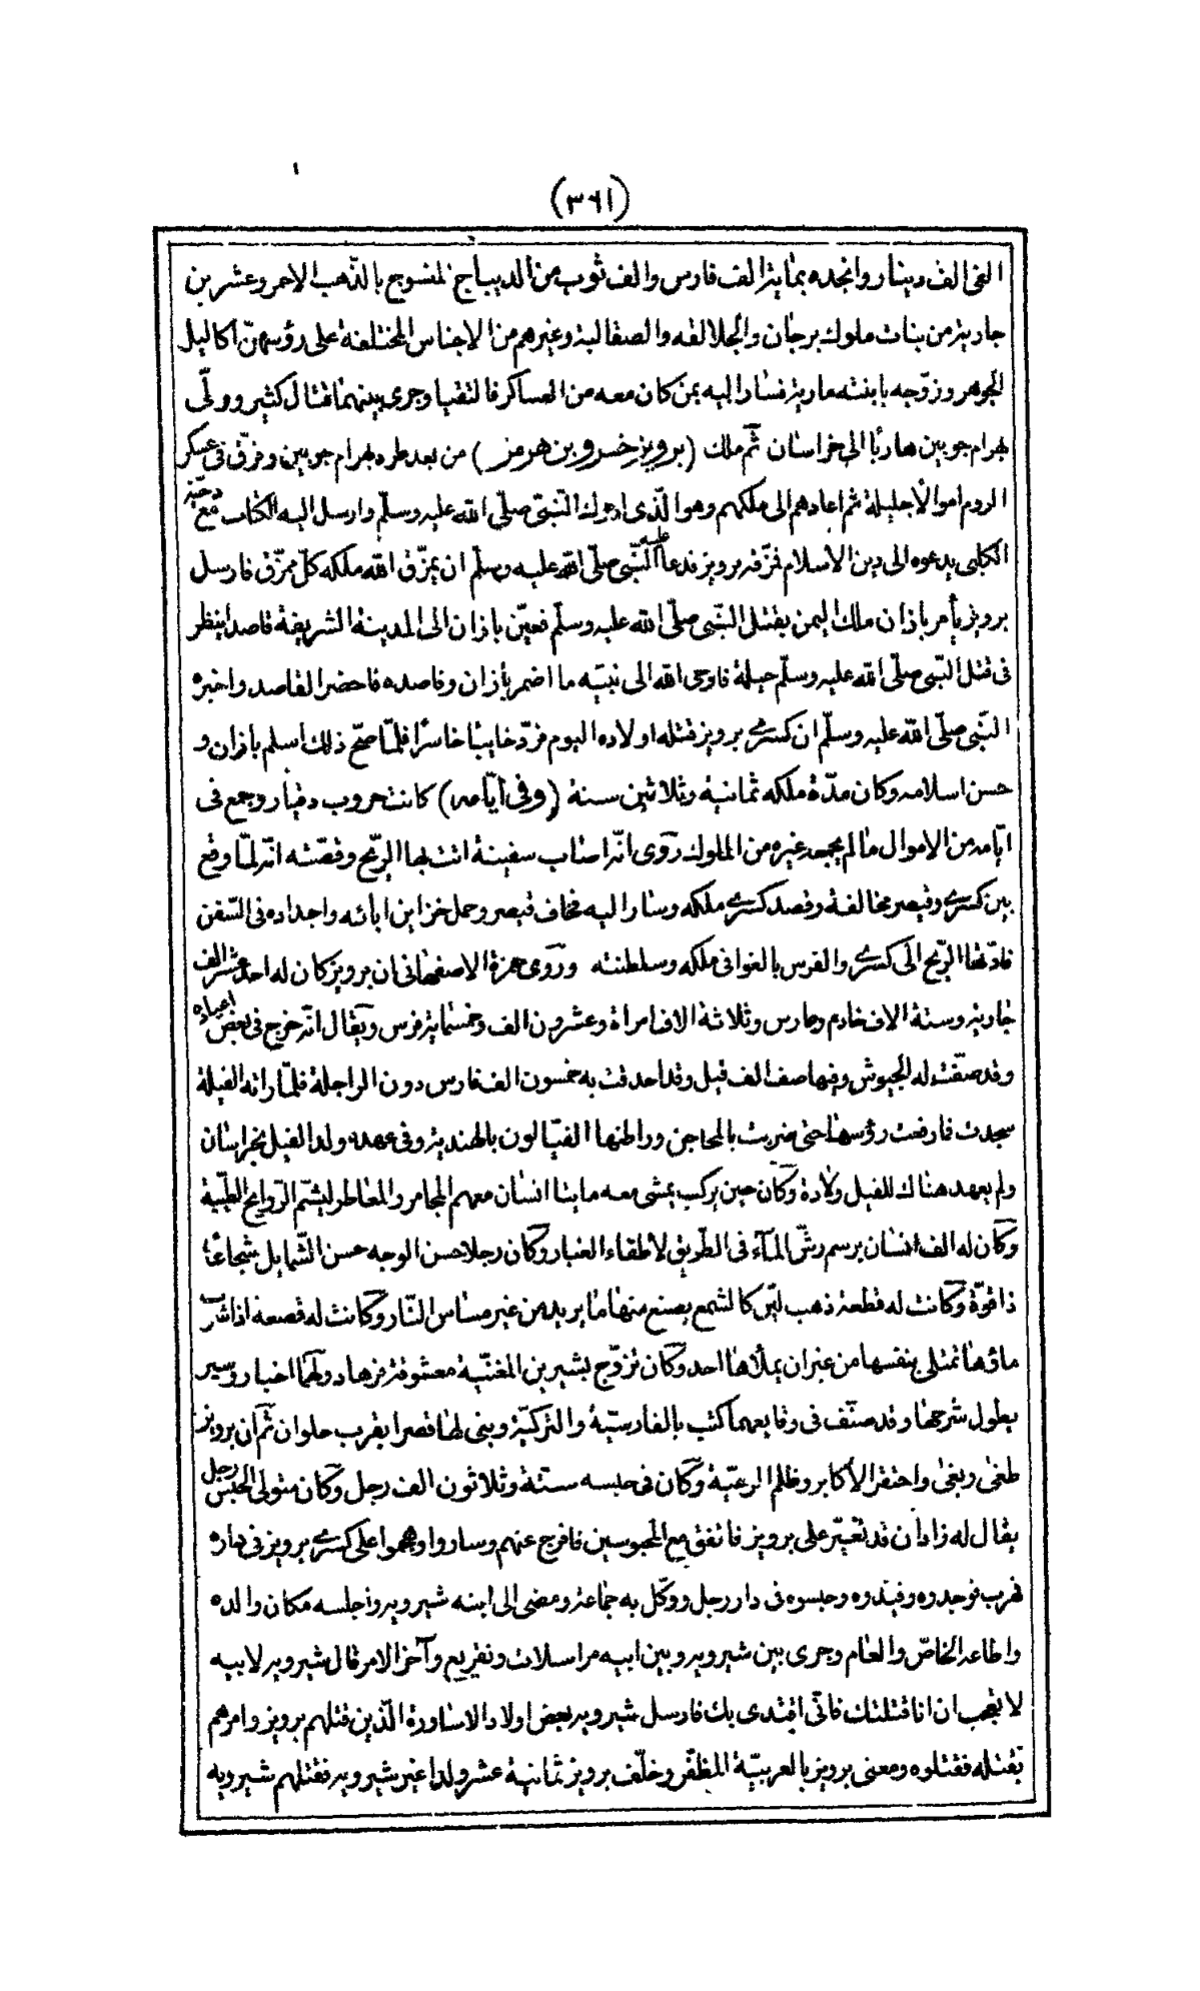 (٣٦١)
الفى الف دينار وانجده بمائة الف فارس والف ثوب من الديباج المنسوج بالذّهب الاحمر وعشرين
جارية من بنات ملوك برجان والجلالقه والصقالبة وغيرهم من الاجناس المختلفة على رؤسهنّ اكاليل
الجوهر وزوّجه بابنته مارية فسار اليه بمن كان معه من العساكر فالتقيا وجرى بينهما قتال كثير وولّى
بهرام جوبين هاربا الى خراسان ثمّ ملك (برويز خسرو بن هرمز) من بعد طرد بهرام جوبين وفرّق فى عسكر
الروم اموالا جليلة ثم اعادهم الى ملكهم وهو الّذى ادرك النّبىّ صلّى الله عليه وسلّم وارسل اليه الكتاب مع دحية
الكلبى يدعوه الى دين الاسلام فمزّقه برويز فدعا عليه النّبى صلّى الله عليه وسلّم ان يمزّق الله ملكه كلّ ممزّق فارسل
برويز يأمر باذان ملك اليمن بقتل النّبى صلّى الله عليه وسلّم فعيّن باذان الى المدينة الشريفة قاصدا ينظر
فى قتل النّبى صلّى الله عليه وسلّم حيلة فاوحى الله الى نبيّه ما اضمر باذان وقاصده فاحضر القاصد واخبره
النّبى صلّى الله عليه وسلّم ان كسرى برويز قتله اولاده اليوم فردّ خايبا خاسرا فلمّا صحّ ذلك اسلم باذان و
حسن اسلامه وكان مدّة ملكه ثمانية وثلاثين سنة (وفى ايّامه) كانت حروب دقيار وجمع فى
ايّامه من الاموال ما لم يجمعه غيره من الملوك روى انّه اصاب سفينة اتت بها الرّيح وقصّته انّه لمّا وقع
بين كسرى وقيصر مخالفة وقصد كسرى ملكه وسار اليه فخاف قيصر وحمل خزاين ابائه واجداده فى السّفن
فادّتها الرّيح الى كسرى والفرس بالغوا فى ملكه وسلطنته وروى حمزة الاصفهانى ان برويز كان له احد عشر الف
جارية وستة الاف خادم وحارس وثلاثة الاف امراة وعشرون الف وخمسماية فرس ويقال انّه خرج فى بعض اعياده
وقد صفّت له الجيوش وفيها صف الف فيل وقد احدقت به خمسون الف فارس دون الراجلة فلمّا راته الفيلة
سجدت فما رفعت رؤسها حتى ضربت بالمحاجن وراطنها الفيّالون بالهندية وفى عهده ولد الفيل بخراسان
ولم يعهد هناك للفيل ولادة وكان حين يركب يمشى معه مايتا انسان معهم المجامر والمعاطر ليشتم الرّوايح الطّيّبة
وكان له الف انسان برسم رشّ المآء فى الطّريق لاطفاء الغبار وكان رجلا حسن الوجه حسن الشّمايل شجاعا
ذا قوّة وكانت له قطعة ذهب ليّن كالشمع يصنع منها ما يريد من غير مساس النّار وكانت له قصعة اذا شرب
ماؤها تمتلى بنفسها من غير ان يملأها احد وكان تزوّج بشيرين المغنّية معشوقة فرهاد ولهما اخبار وسير
يطول شرحها وقد صنّف فى وقايعهما كتب بالفارسيّة والتركيّة وبنى لها قصرا بقرب حلوان ثمّ ان برويز
طغى وبغى واحتقر الأكابر وظلم الرعيّة وكان فى حبسه ستّة وثلاثون الف رجل وكان متولى الحبس رجل
يقال له زادان قد تغيّر على برويز فاتفق مع المحبوسين فافرج عنهم وساروا وهجموا على كسرى برويز فى داره
فهرب فوجدوه وقيّدوه وحبسوه فى دار رجل ووكّل به جماعة ومضى الى ابنه شيرويه واجلسه مكان والده
واطاعه الخاصّ والعام وجرى بين شيرويه وبين ابيه مراسلات وتقريع وآخر الامر قال شيرويه لابيه
لا تعجب ان انا قتلتك فانّى اقتدى بك فارسل شيرويه بعض اولاد الاساورة الّذين قتلهم برويز وامرهم
بقتله فقتلوه ومعنى برويز بالعربيّة المظفّر وخلّف برويز ثمانية عشر ولدا غير شيرويه فقتلهم شيرويه